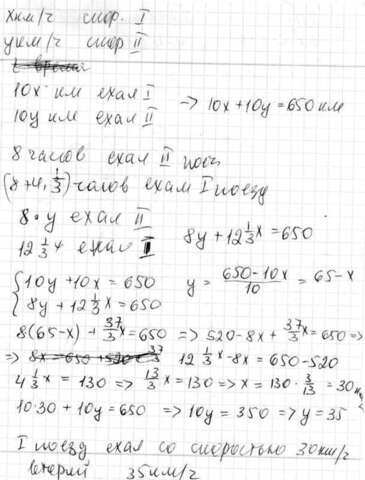 x км/ч скор. I
y км/ч скор II
t время
10x км ехал I
10y км ехал II -> 10x + 10y = 650 км
8 часов ехал II поезд
(8 + 4 1/3) часов ехал I поезд
8 · y ехал II
12 1/3 x ехал I
8y + 12 1/3 x = 650
{ 10y + 10x = 650
{ 8y + 12 1/3 x = 650
y = (650 - 10x)/10 = 65 - x
8(65-x) + 37/3 x = 650 => 520 - 8x + 37/3 x = 650 =>
=> 8x = 650 + 520 - 37/3 12 1/3 x - 8x = 650 - 520
4 1/3 x = 130 => 13/3 x = 130 => x = 130 · 3/13 = 30 км/ч
10·30 + 10y = 650 => 10y = 350 => y = 35
I поезд ехал со скоростью 30 км/ч
второй 35 км/ч